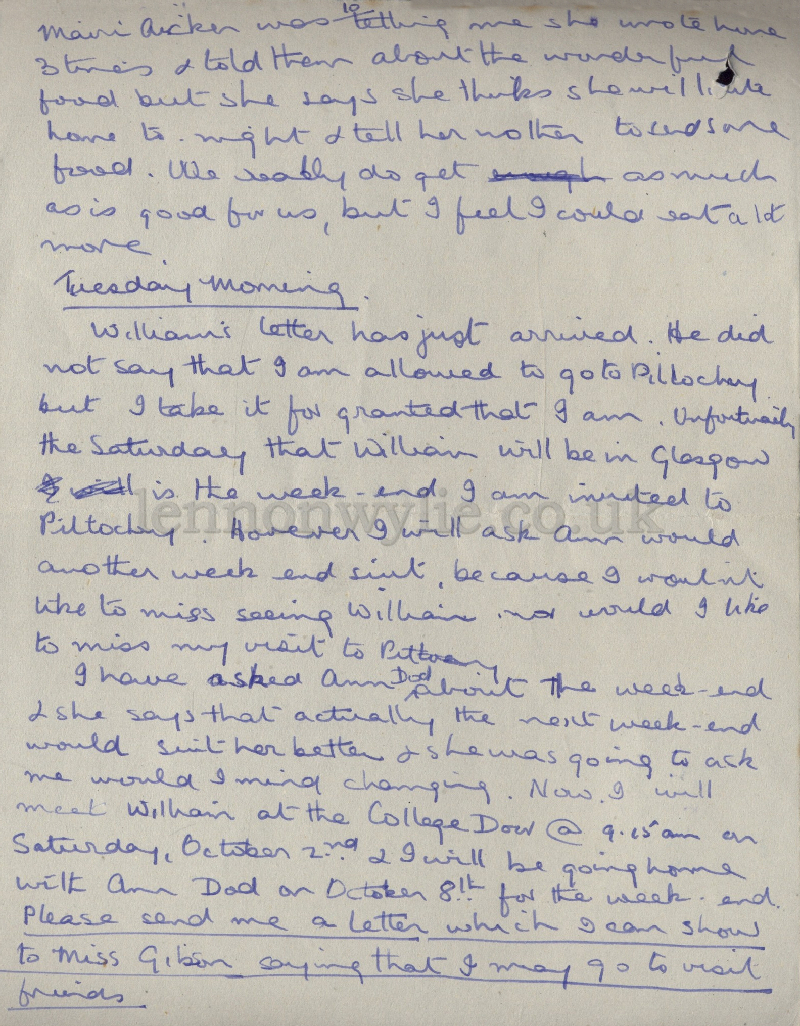 Mairi Aicken was telling me she wrote home
3 times & told them about the wonderful
food but she says she thinks she will write
home to-night & tell her mother to send some
food. We really do get enough as much
as is good for us, but I feel I could eat a lot
more.
Tuesday Morning.
William's letter has just arrived. He did
not say that I am allowed to go to Pitlochry
but I take it for granted that I am. Unfortunatly
the Saturday that William will be in Glasgow
is the week-end I am invited to
Pitlochry. However I will ask Ann would
another week end suit, because I wouldn't
like to miss seeing William nor would I like
to miss my visit to Pitlochry
I have asked Ann Dod about the week-end
& she says that actually the next week-end
would suit her better & she was going to ask
me would I mind changing. Now I will
meet William at the College Door @ 9.15 am on
Saturday, October 2nd. & I will be going home
with Ann Dod on October 8th for the week-end.
Please send me a letter which I can show
to Miss Gibson saying that I may go to visit
friends.
lennonwylie.co.uk